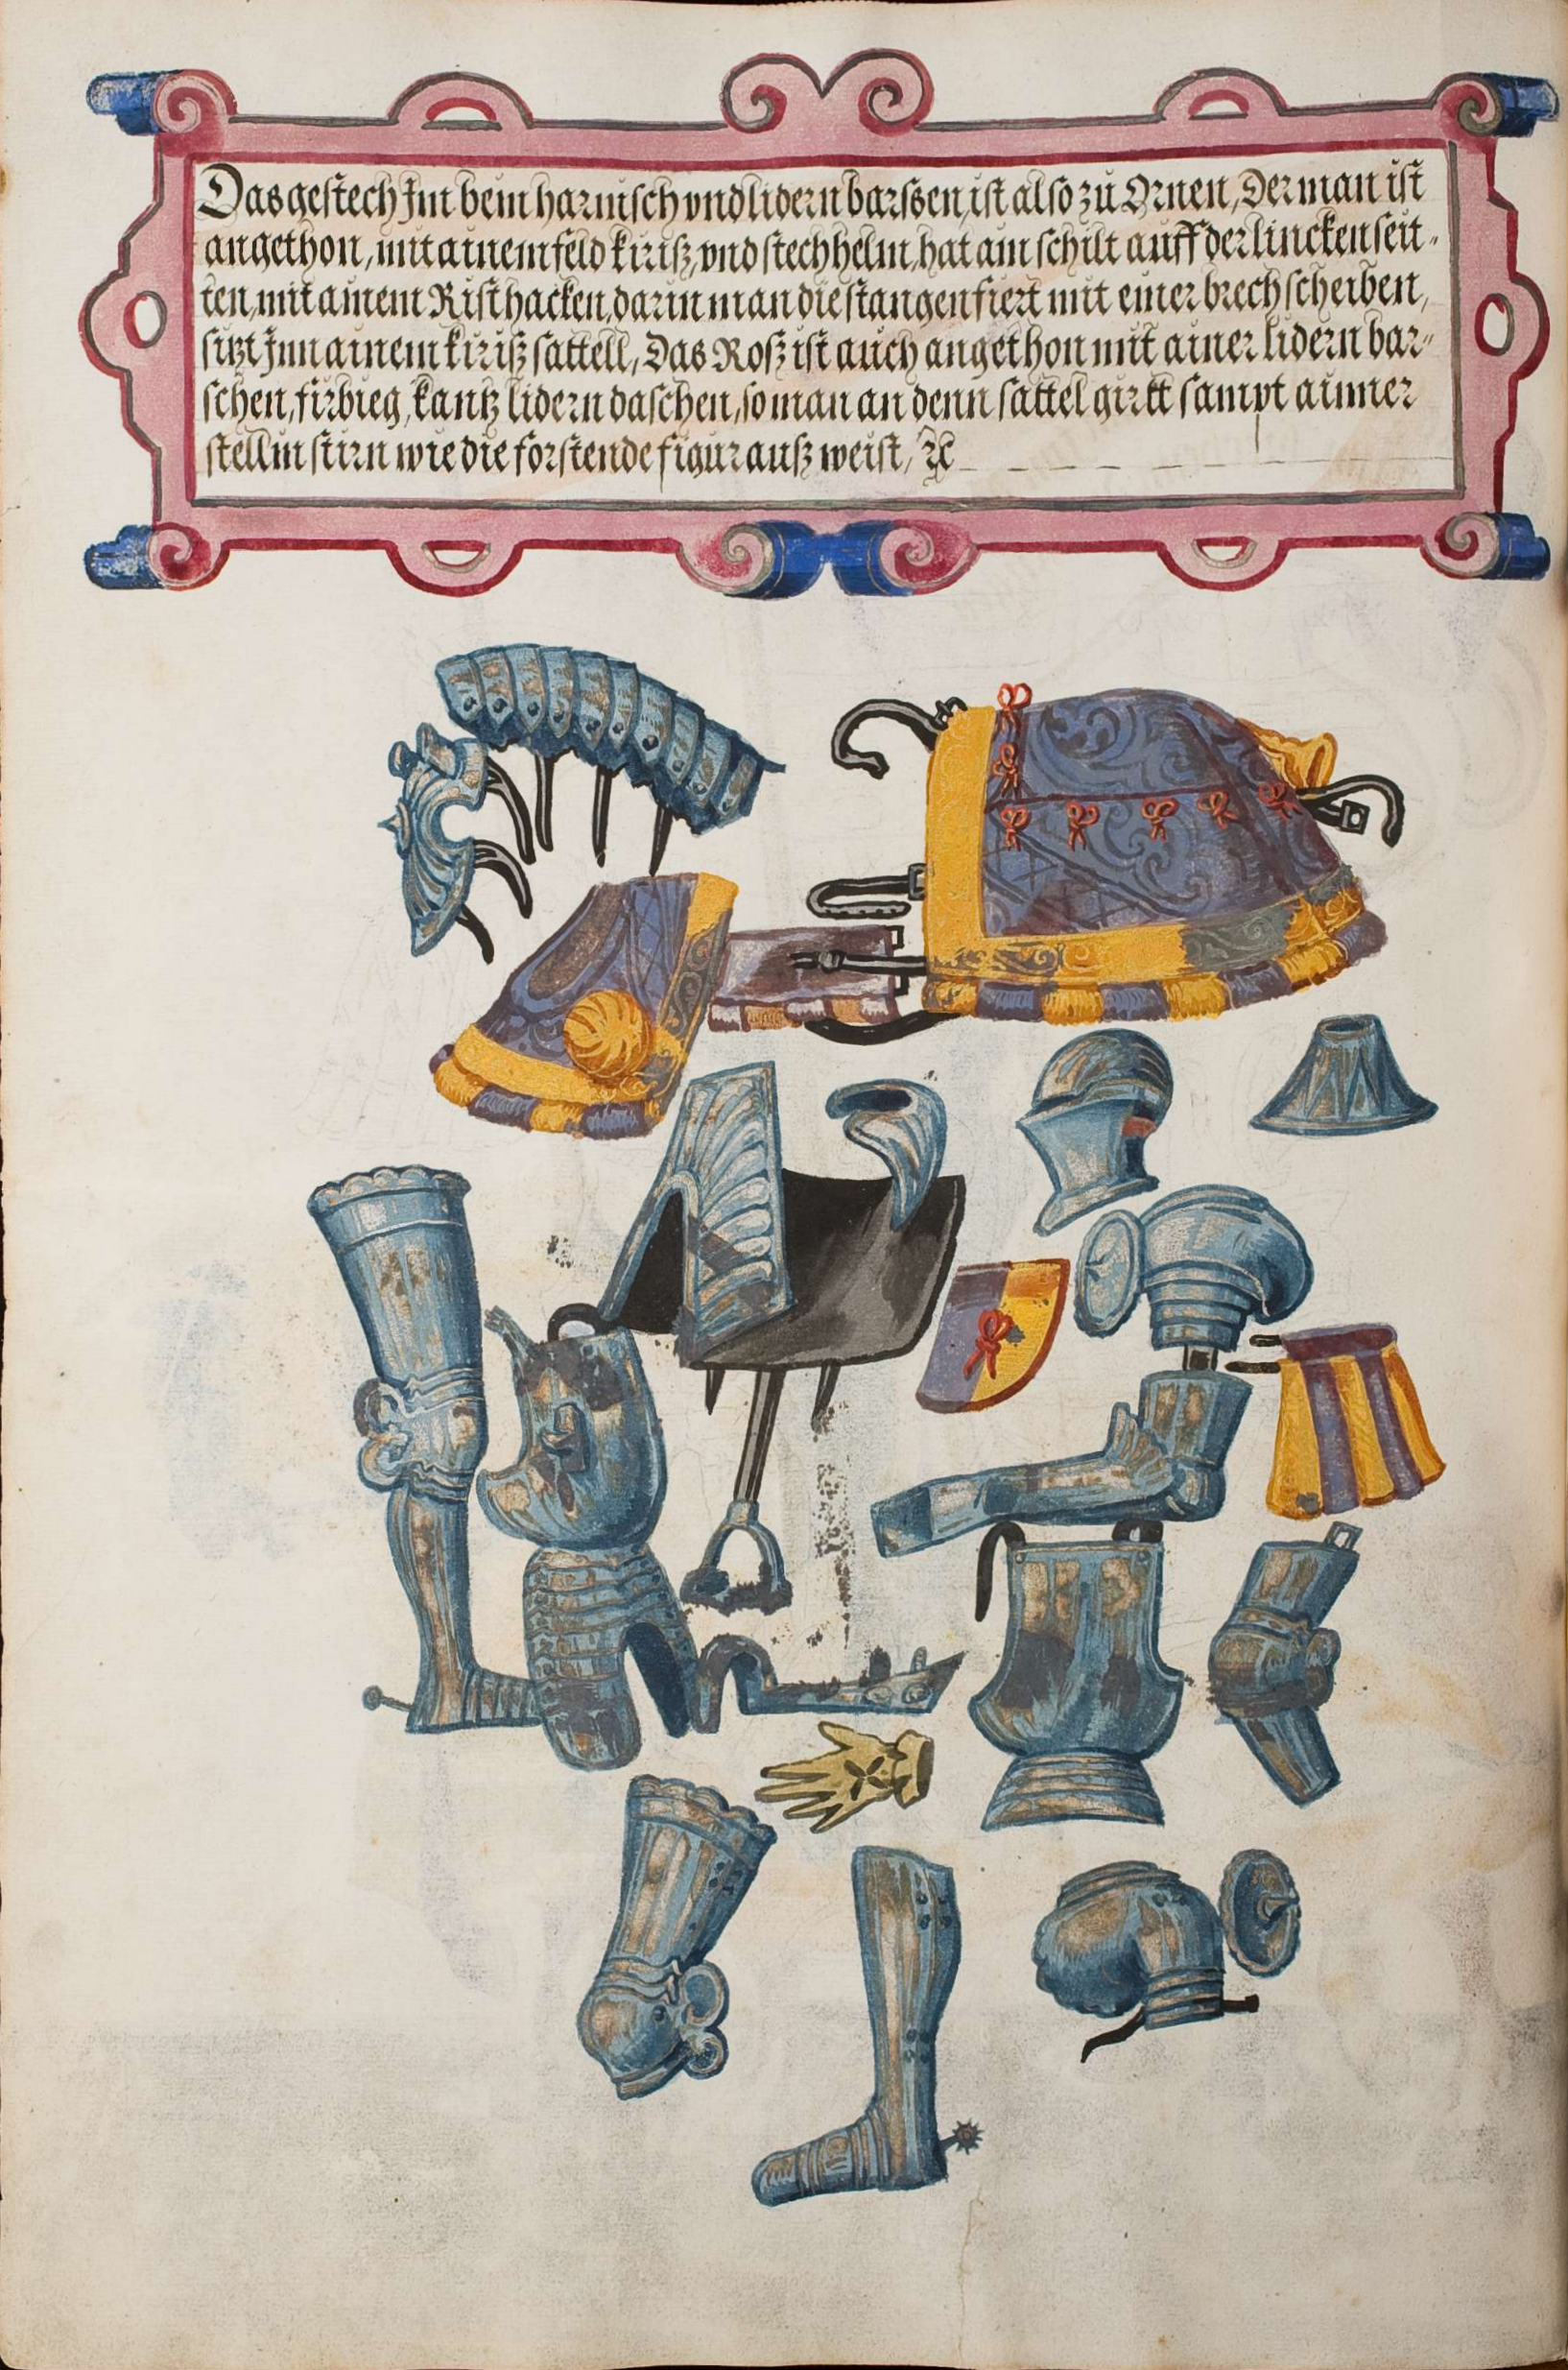 Das gestech Im bein harnisch vnd lidern barssen, ist also zů Ornen, Der man ist
angethon, mit ainem feld kiriß, vnd stechhelm, hat ain schilt auff der lincken seit-
ten, mit ainem Risthacken, darin man die stangen fiert mit einer brechscheiben,
sitzt Inn ainem kiriß sattell, Das Roß ist auch angethon mit ainer lidern bar-
schen, firbieg, kantz lidern daschen, so man an denn sattel girtt sampt ainner
stellin stirn wie die forstende figur außweist, ꝛc